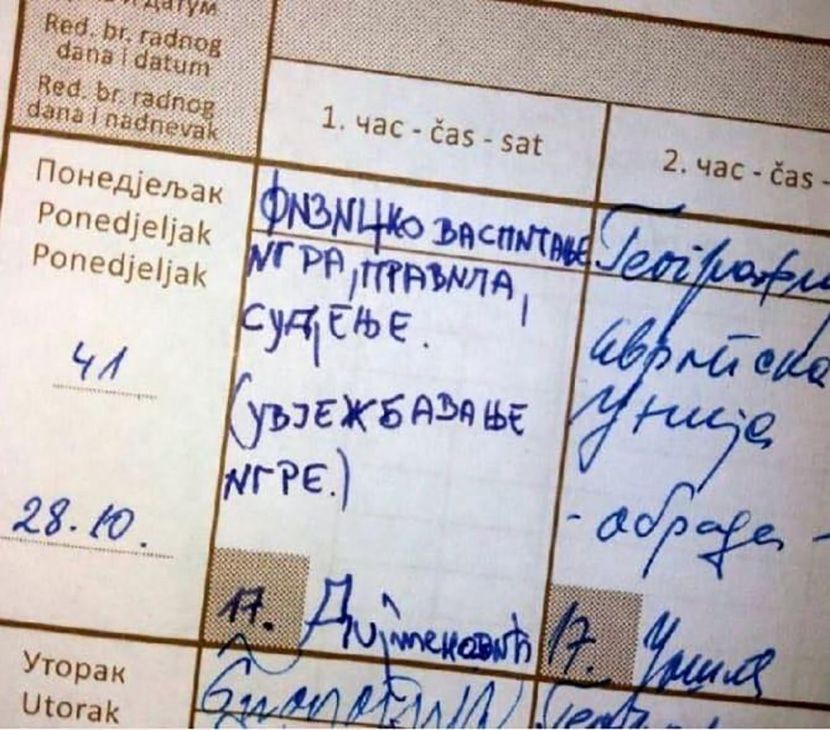 и датум
Red. br. radnog
dana i datum
Red. br. radnog
dana i nadnevak
1. час - čas - sat
2. час - čas -
Понедјељак
Ponedjeljak
Ponedjeljak
41
28.10.
ФИЗИЦКО ВАСПИТАЊЕ
ИГРА, ПРАВИЛА,
СУДЕЊЕ.
(УВЈЕЖБАВАЊЕ
ИГРЕ.)
17.
Географи
Европска
Унија
- обрада -
17.
Уторак
Utorak